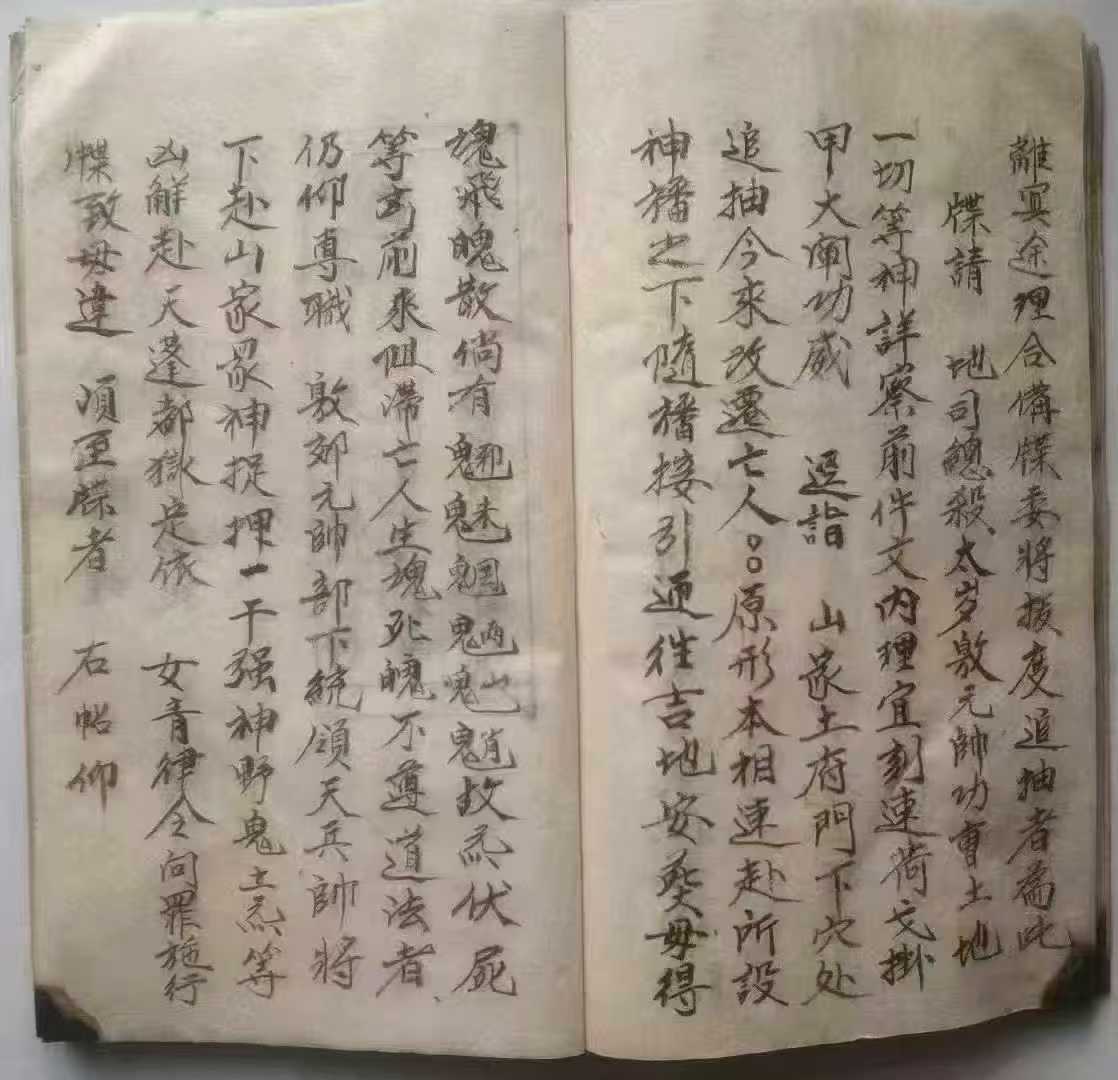 離冥途理合備牒委將拔度追抽者為此
牒請 地司總殺太岁敫元帥功曹土地
一切等神詳察前件文内理宜刻連荷戈掛
甲大闹功威 逕詣 山家土府門下穴处
追抽今來改遷亡人○○原形本相連赴所設
神旛之下隨旛接引逓往吉地安葬毋得
魂飛魄散倘有魑魅魍魎魈故炁伏屍
等於前來阻滞亡人生魂死魄不遵道法者
仍仰專職 敫郊元帥部下統領天兵帥將
下赴山家眾神捉押一干强神野鬼土炁等
凶解赴天蓬都獄定依 女青律令问罪施行
牒致毋違 須至牒者 右帖仰